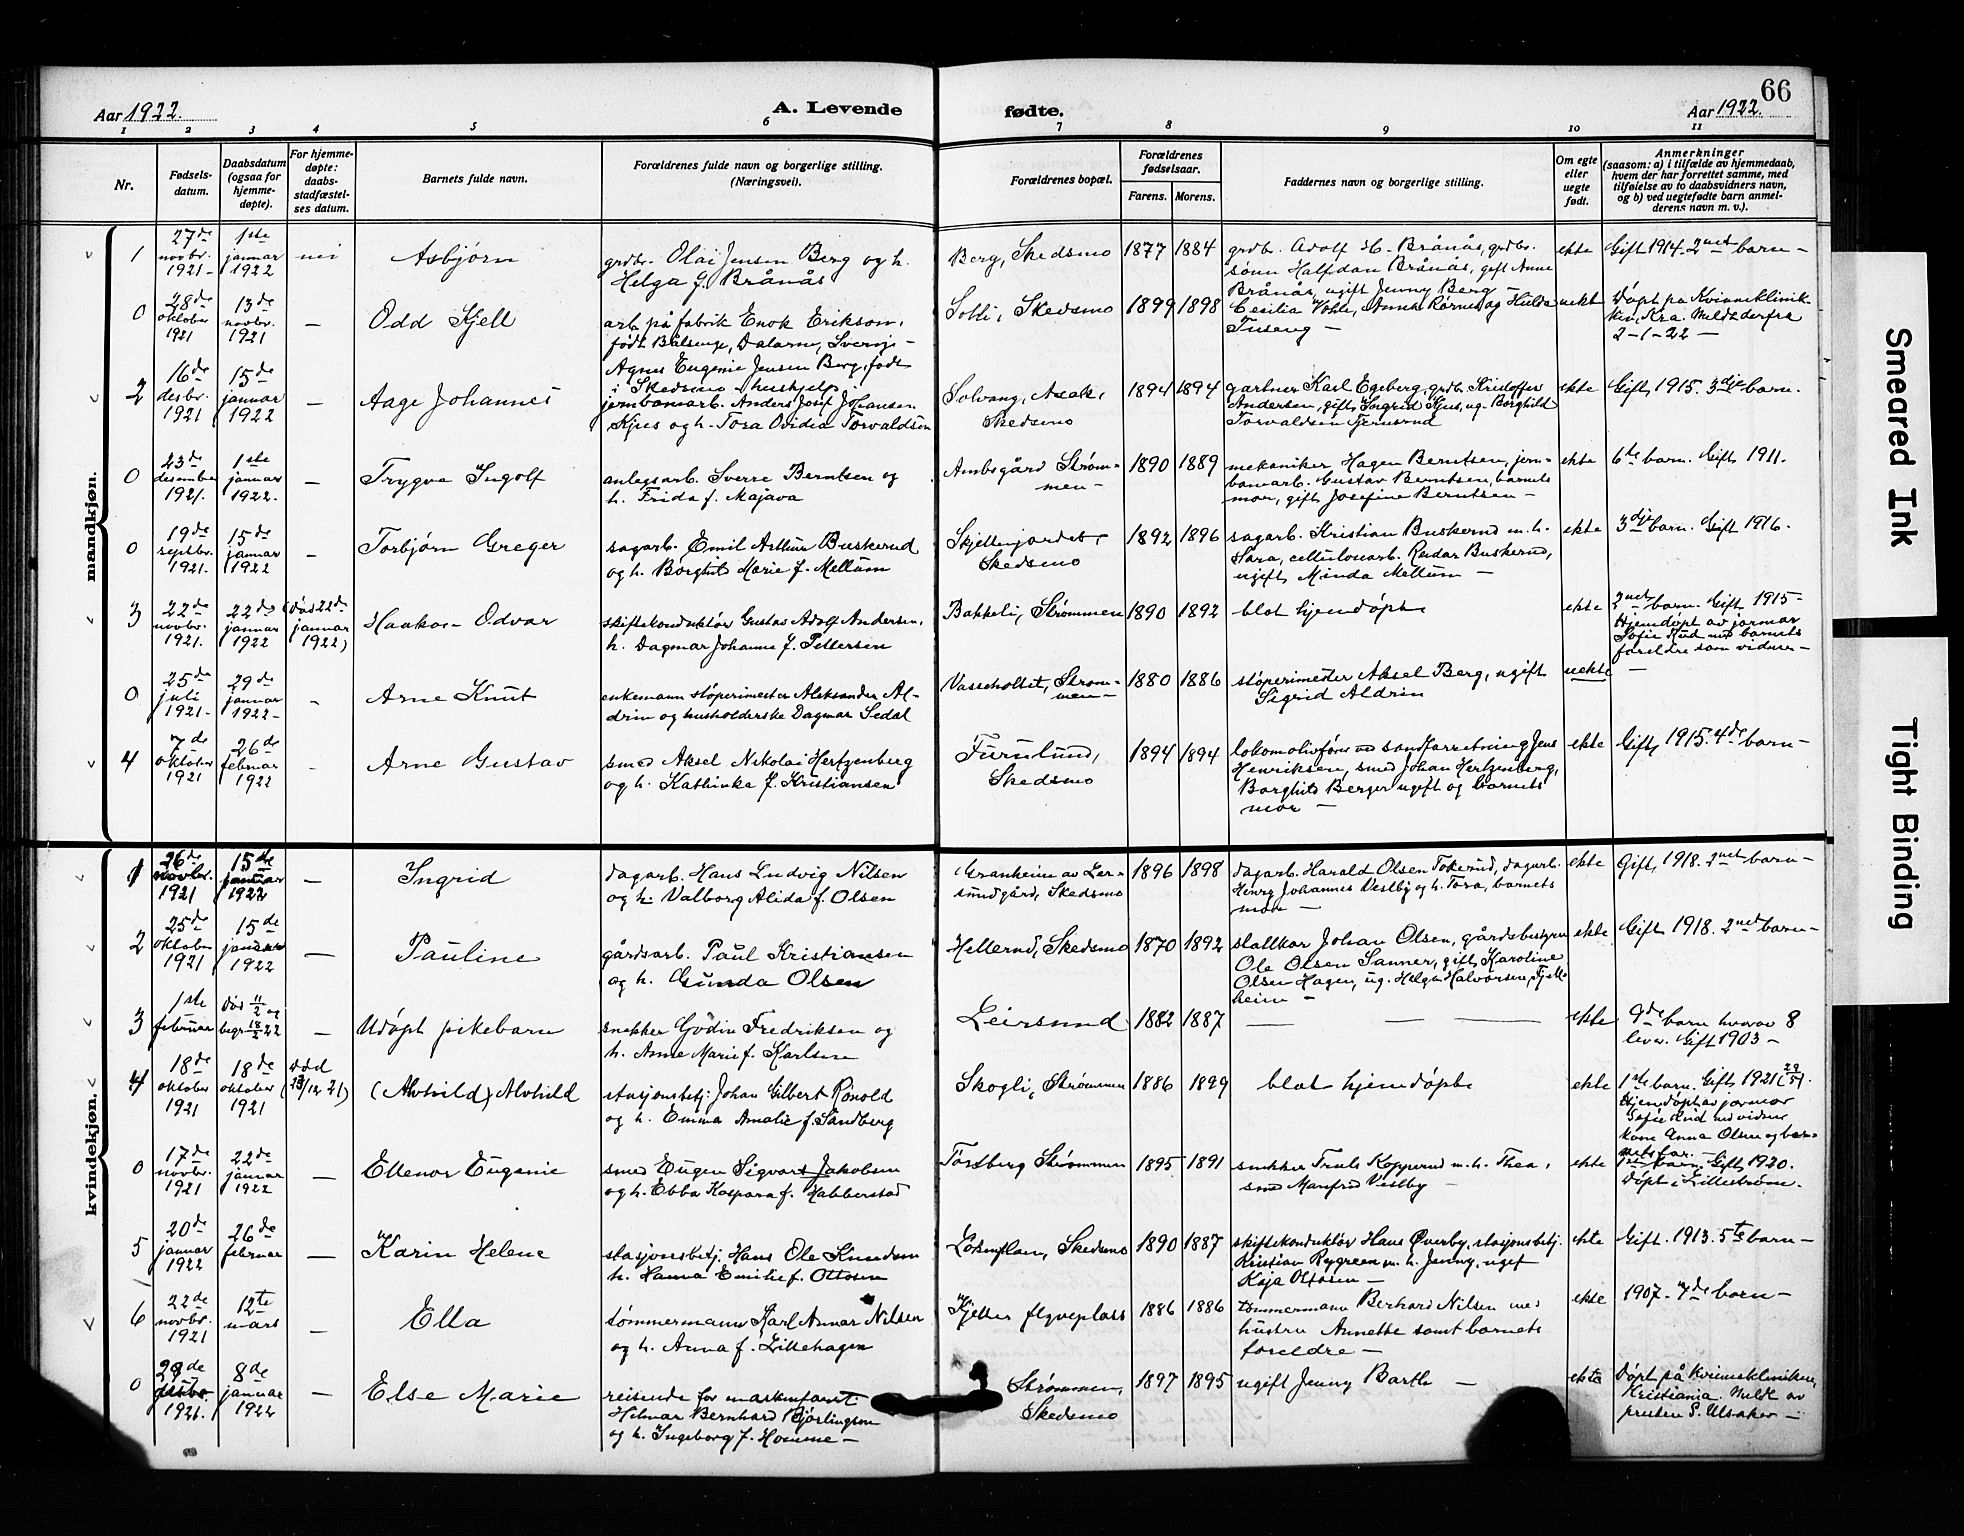 66
Aar 1922.
A. Levende
fødte.
Aar 1922.
1 2 3 4 5 6 7 8 9 10 11
Nr.
Fødsels-
datum.
Daabsdatum
(ogsaa for
hjemme-
døpte).
For hjemme-
døpte:
daabs-
stadfæstel-
ses datum.
Barnets fulde navn.
Forældrenes fulde navn og borgerlige stilling.
(Næringsvei).
Forældrenes bopæl.
Forældrenes
fødselsaar.
Farens. Morens.
Faddernes navn og borgerlige stilling.
Om egte
eller
uegte
født.
Anmerkninger
(saasom: a) i tilfælde av hjemmedaab,
hvem der har forrettet samme, med
tilføielse av to daabsvidners navn,
og b) ved uegtefødte barn anmel-
derens navn m. v.).
mandkjøn.
1
27de
novbr.
1921-
1ste
januar
1922
nei
Asbjørn
grdbr. Olai Jensen Berg og h.
Helga f. Brånås
Berg, Skedsmo
1877 1884
grdb. Adolf H. Brånås, grdbr.
sønn Halfdan Brånås, gift Anne
Brånås, ugift Jenny Berg -
ekte
Gift 1914. 2net barn -
0
28de
oktober
1921
13de
novbr.
1921
-
Odd Kjell
arb. på fabrik Enok Erikson,
født Bålsenge, Dalarne, Sverge -
Agnes Eugenie Jensen Berg, født
i Skedsmo - hushjelp
Solli, Skedsmo
1899 1898
Cecilia Vohle, Anna Rørnes og Hulda
Tuseng -
uekt
Døpt på Kvinneklinik-
ken, Kra. Meldt derfra
2-1-22 -
2
16de
desbr.
1921
15de
januar
1922
-
Aage Johannes
jernbanearb. Anders Josef Johansen
Kjus og h. Tora Ovidia Torvaldsen
Solvang, Asak,
Skedsmo
1894 1894
gartner Karl Egeberg, grdb. Kristoffer
Andersen, gift Ingrid Kjus, ug. Borghild
Torvaldsen Fjernsrud
ekte
Gift 1915. 3dje barn.
0
23de
desember
1921.
1ste
januar
1922.
-
Trygve Ingolf
anlegsarb. Sverre Berntsen og
h. Frida f. Majava
Ambsgård Strøm-
men -
1890 1889
mekaniker Hagen Berntsen, jern-
banearb. Gustav Berntsen, barnets
mor, gift Josefine Berntsen -
ekte
6te barn. Gift 1911.
0
19de
septbr.
1921.
15de
januar
1922
-
Torbjørn Greger
sagarb. Emil Arthur Buskerud
og h. Borghild Marie f. Mellum
Skjetterjordet,
Skedsmo
1892 1896
sagarb. Kristian Buskerud m. h.
Sara, cellulosearb. Reidar Buskerud,
ugift Minda Mellum -
ekte
3dje barn. Gift 1916.
3
22de
novbr.
1921.
22de
januar
1922
(død 22de
januar
1922)
Haakon Odvar
skiftekonduktør Gustav Adolf Andersen,
h. Dagmar Johanne f. Pettersen
Bakkeli, Strømmen
1890 1892
blot hjemdøpt
ekte
2net barn. Gift 1915-
Hjemdøpt av jormor
Sofie Rud med barnets
foreldre som vidner -
0
25de
juli
1921-
29de
januar
1922-
-
Arne Knut
enkemann støperimester Aleksander Al-
drin og husholderske Dagmar Sedal
Vasseholtet, Strøm-
men -
1880 1886
støperimester Aksel Berg, ugift
Sigrid Aldrin
uekte
-
4
7de
oktober
1921
26de
februar
1922
-
Arne Gustav
smed Aksel Nikolai Hertzenberg
og h. Kathinka f. Kristiansen
Furulund,
Skedsmo
1894 1894
lokomotivfører ved sandforretning Jens
Henriksen, smed Johan Hertzenberg,
Borghild Berger ugift og barnets
mor -
ekte
Gift 1915. 4de barn -
kvindekjøn.
1
26de
novbr.
1921
15de
januar
1922
-
Ingrid
dagarb. Hans Ludvig Nilsen
og h. Valborg Alida f. Olsen
Granheim av Leir-
sundgård, Skedsmo
1896 1898
dagarb. Harald Olsen Tokerud, dagarb.
Henry Johannes Vestby og h. Tora, barnets
mor -
ekte
Gift 1918. 2net barn -
2
25de
oktober
1921
15de
januar
1922
-
Pauline
gårdsarb. Paul Kristiansen
og h. Gunda Olsen
Hellerud, Skedsmo
1870 1892
stallkar Johan Olsen, gårdsbestyrer
Ole Olsen Sanner, gift Karoline
Olsen Hagen, ug. Helga Halvorsen, Fjell-
heim -
ekte
Gift 1918. 2net barn -
3
1ste
februar
død 11/2 og
begr. 18/2 22
-
Udøpt pikebarn
snekker Godin Fredriksen og
h. Anne Marie f. Karlsen
Leirsund
1882 1887
- - -
ekte
9de barn hvorav 8
lever. Gift 1903 -
4
18de
oktober
1921
18de
oktober
1921
død
(13/12 21)
(Alvhild) Alvhild
stasjonsbetj. Johan Gilbert Rönold
og h. Emma Amalie f. Sandberg
Skogli, Strømmen
1886 1899
blot hjemdøpt
ekte
1ste barn. Gift 1921 (29/5).
Hjemdøpt av jormor
Sofie Rud med vidner
kone Anna Olsen og bar-
nets far. -
0
17de
novbr.
1921
22de
januar
1922
-
Ellenor Eugenie
smed Eugen Sigvart Jakobsen
og h. Ebba Kaspara f. Habberstad
Torsberg Strømmen
1895 1891
snekker Truls Kopperud m. h. Thea,
smed Manfred Vestby -
ekte
1ste barn. Gift 1920.
Døpt i Lillestrøm.
5
20de
januar
1922
26de
februar
-
Karin Helene
stasjonsbetj. Hans Ole Knudsen
h. Hanna Emilie f. Ottosen
Lokenflaen, Skedsmo
1890 1887
skiftekonduktør Hans Øverby, stasjonsbetj.
Kristian Rygreen m. h. Jenny, ugift
Kaja Ottosen -
ekte
Gift. 1913. 5te barn -
6
22de
novbr.
1921
12te
mars
-
Ella
tømmermann Karl Annar Nilsen
og h. Anna f. Lillehagen
Kjeller flyveplass
1886 1886
tømmermann Berhard Nilsen med
hustru Annette samt barnets
foreldre -
ekte
1907 - 7de barn -
0
29de
desbr.
1921.
8de
januar
1922
-
Else Marie
reisende for maskinfirmat.
Helmar Bernhard Björlingson
og h. Ingeborg f. Homme -
Strømmen,
Skedsmo
1897 1895
ugift Jenny Barth -
ekte
Døpt på Kvinneklinikken,
Kristiania. Meldt av
presten S. Ulsaker -
Smeared Ink
Tight Binding